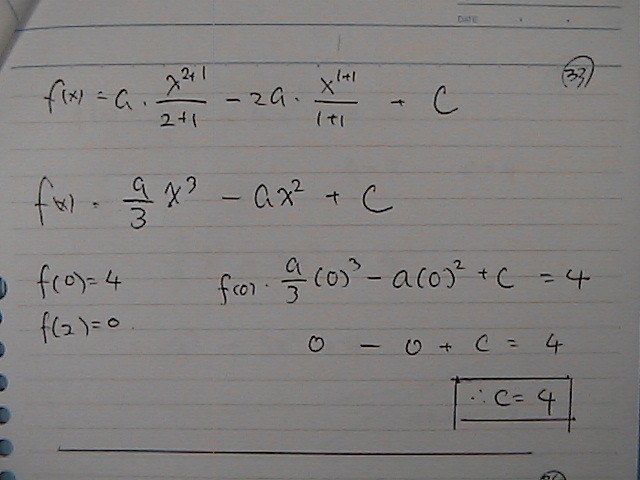 DATE
(33)
f(x) = a · x^(2+1)/(2+1) - 2a · x^(1+1)/(1+1) + C
f(x) = a/3 x³ - ax² + C
f(0)=4
f(2)=0.
f(0) = a/3 (0)³ - a(0)² + C = 4
0 - 0 + C = 4
∴ C = 4